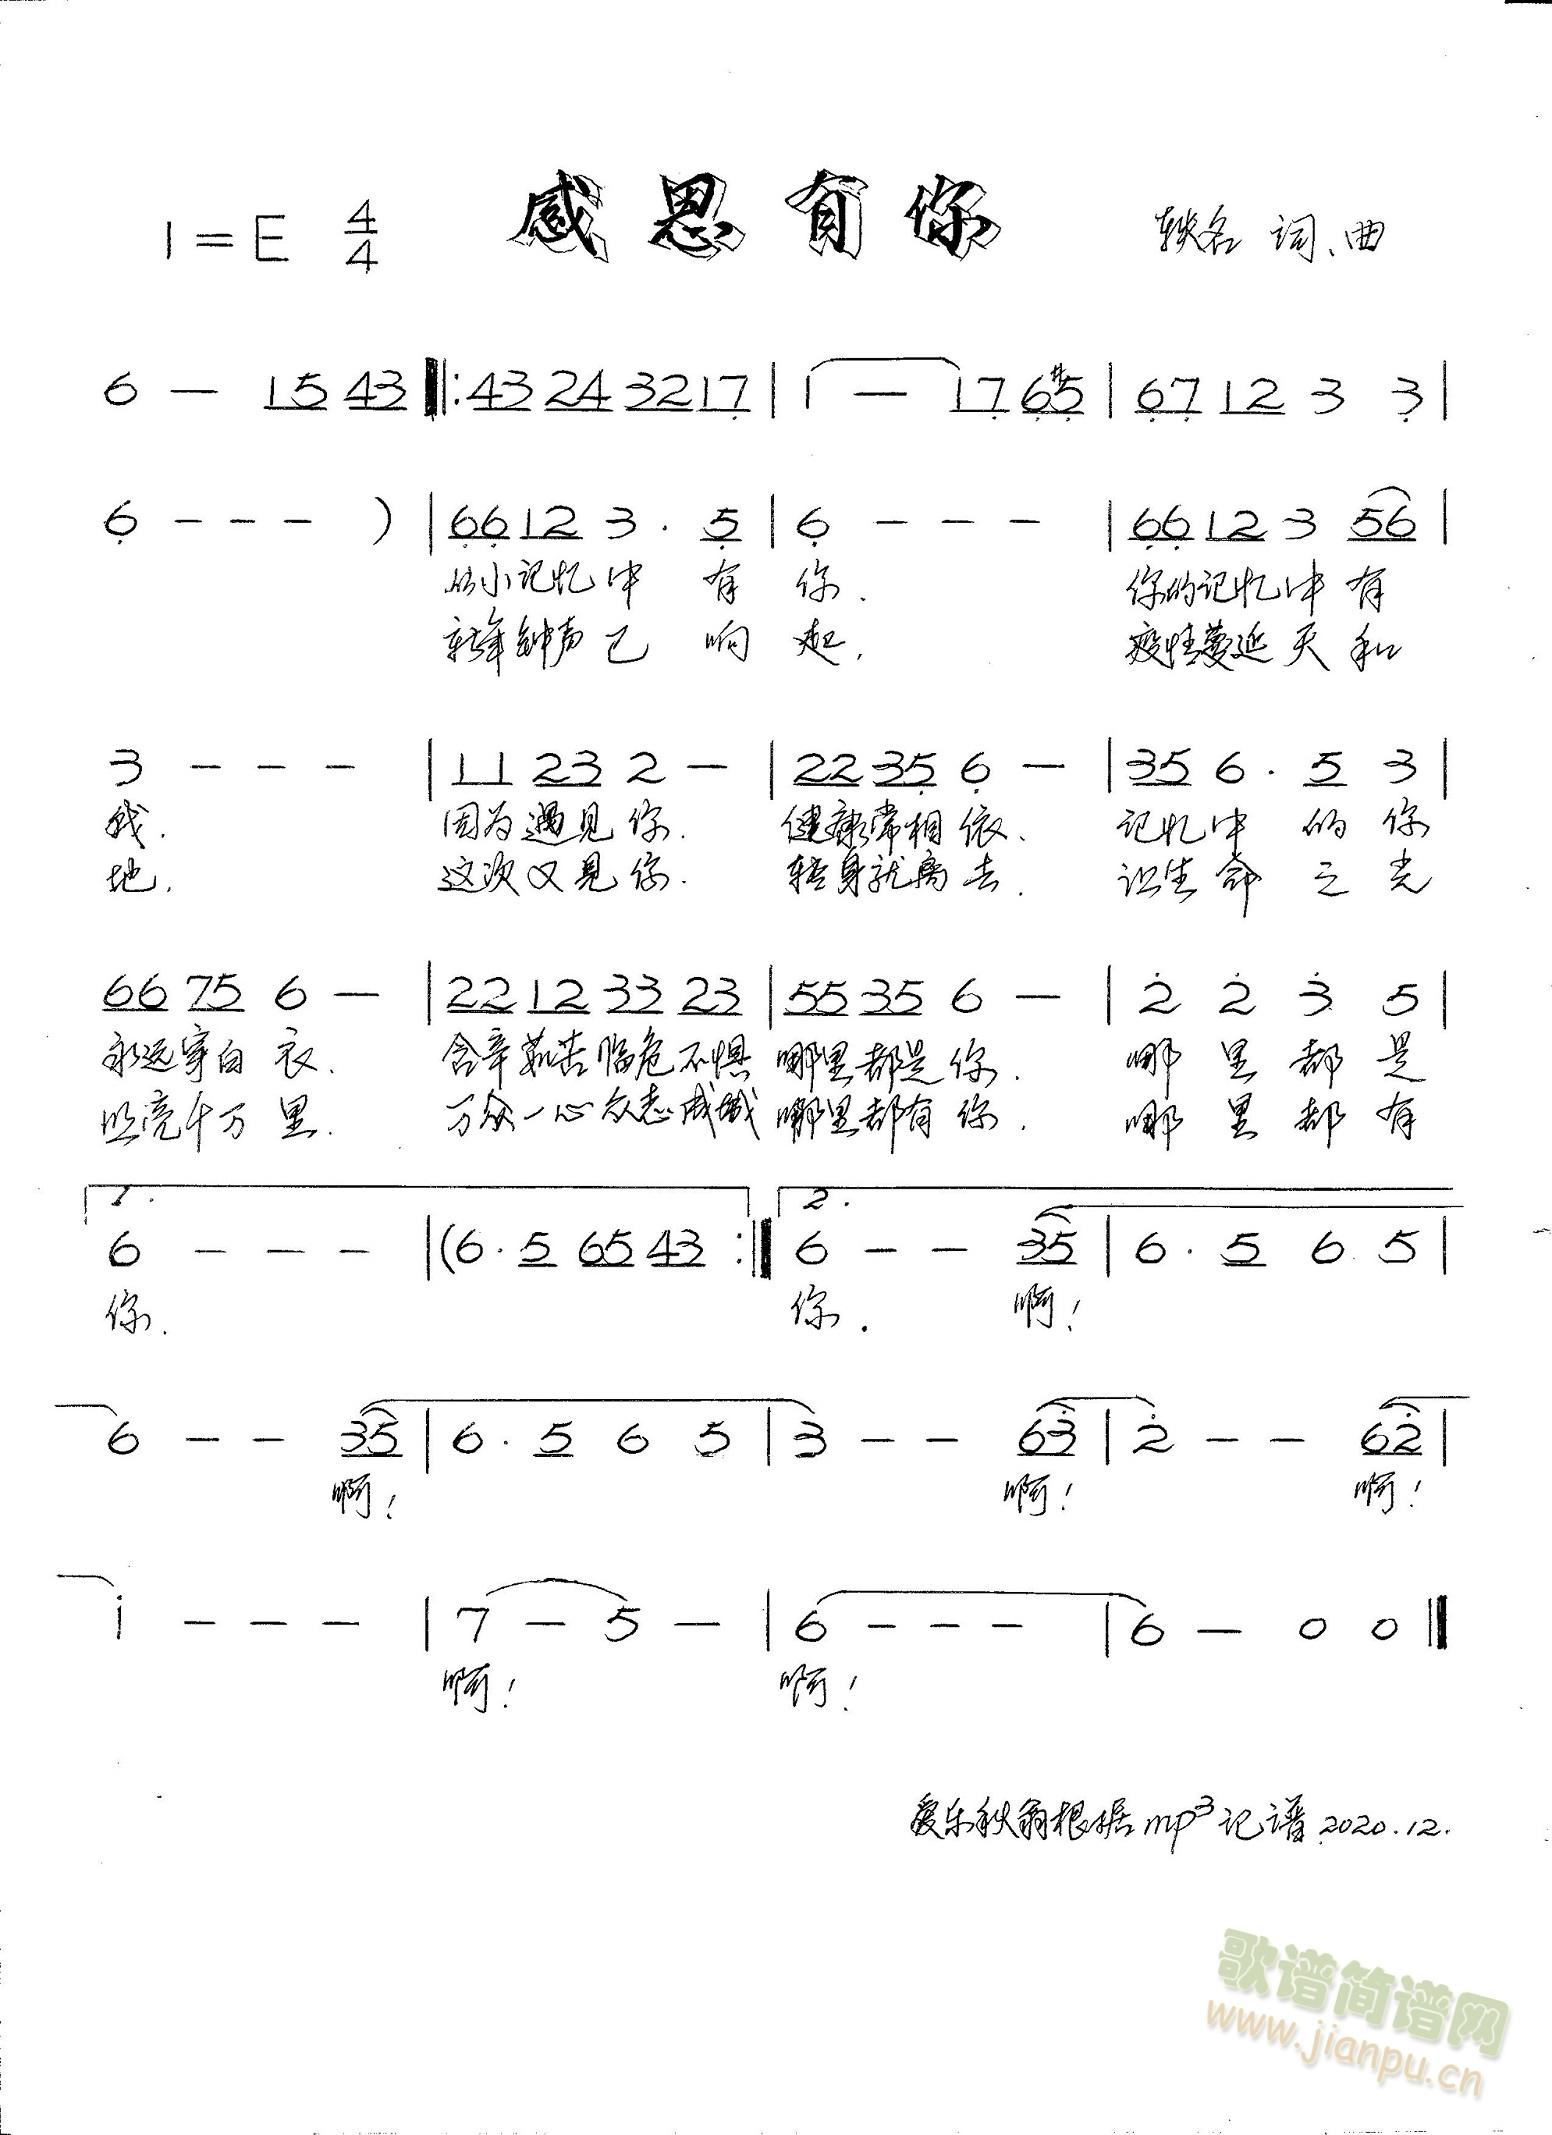 感恩有你
1=E 4/4
轶名 词、曲
6 — 15 43 ‖: 43 24 3217 | 1 — 17 6#5 | 67 12 3 3 |
6 - - - ) | 66 12 3 . 5 | 6 - - - | 66 12 3 56 |
从小记忆中 有 你. 你的记忆中 有
新年钟声已 响 起. 疫情蔓延天 和
3 - - - | 11 23 2 — | 22 35 6 — | 35 6 . 5 3 |
我. 因为遇见你. 健康常相依. 记忆中 的 你
地. 这次又见你. 转身就离去. 让生命 之 光
66 75 6 — | 22 12 33 23 | 55 35 6 — | 2 2 3 5 |
永远穿白衣. 含辛茹苦临危不惧 哪里都是你. 哪 里 都 是
照亮千万里. 万众一心众志成城 哪里都有你. 哪 里 都 有
1. 2.
6 - - - | (6 . 5 65 43 :‖ 6 - - 35 | 6 . 5 6 5 |
你. 你. 啊!
6 - - 35 | 6 . 5 6 5 | 3 - - 63 | 2 - - 62 |
啊! 啊! 啊!
1 - - - | 7 — 5 — | 6 - - - | 6 — 0 0 ‖
啊! 啊!
爱乐秋翁根据mp3记谱 2020.12.
歌谱简谱网
www.jianpu.cn